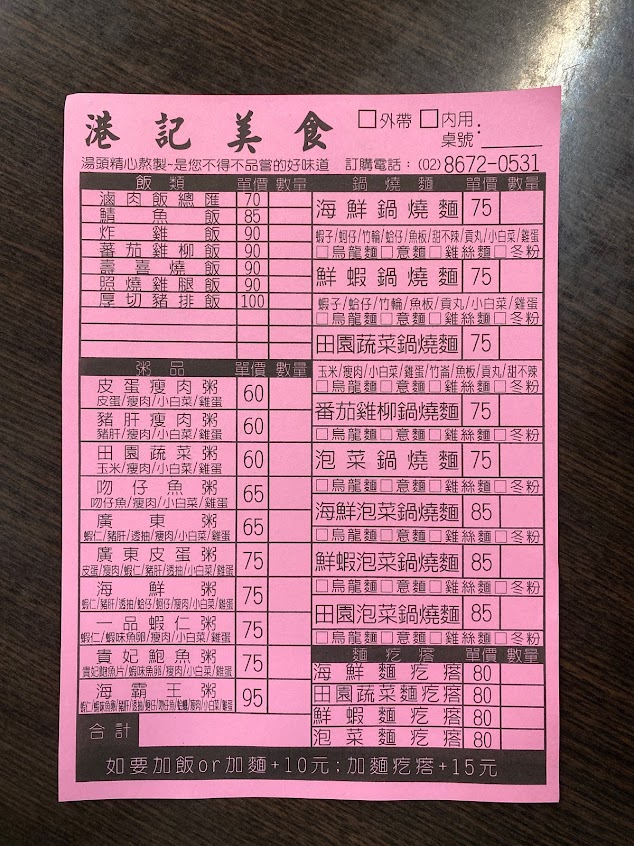 港記美食
□外帶 □內用
桌號:
湯頭精心熬製~是您不得不品嘗的好味道 訂購電話:(02)8672-0531
飯類 單價 數量
滷肉飯總匯 70
鯖魚飯 85
炸雞飯 90
蕃茄雞柳飯 90
壽喜燒飯 90
照燒雞腿飯 90
厚切豬排飯 100
粥品 單價 數量
皮蛋瘦肉粥 60
皮蛋/瘦肉/小白菜/雞蛋
豬肝瘦肉粥 60
豬肝/瘦肉/小白菜/雞蛋
田園蔬菜粥 60
玉米/瘦肉/小白菜/雞蛋
吻仔魚粥 65
吻仔魚/瘦肉/小白菜/雞蛋
廣東粥 65
蝦仁/豬肝/透抽/瘦肉/小白菜/雞蛋
廣東皮蛋粥 75
皮蛋/瘦肉/蝦仁/豬肝/透抽/小白菜/雞蛋
海鮮粥 75
蝦仁/豬肝/透抽/蛤仔/蚵仔/瘦肉/小白菜/雞蛋
一品蝦仁粥 75
蝦仁/蝦味魚卵/瘦肉/小白菜/雞蛋
貴妃鮑魚粥 75
貴妃鮑魚片/蝦味魚卵/瘦肉/小白菜/雞蛋
海霸王粥 95
合計
鍋燒麵 單價 數量
海鮮鍋燒麵 75
蝦子/蚵仔/竹輪/蛤仔/魚板/甜不辣/貢丸/小白菜/雞蛋
□烏龍麵□意麵□雞絲麵□冬粉
鮮蝦鍋燒麵 75
蝦子/蛤仔/竹輪/魚板/貢丸/小白菜/雞蛋
□烏龍麵□意麵□雞絲麵□冬粉
田園蔬菜鍋燒麵 75
玉米/瘦肉/小白菜/雞蛋/竹崙/魚板/貢丸/甜不辣
□烏龍麵□意麵□雞絲麵□冬粉
番茄雞柳鍋燒麵 75
□烏龍麵□意麵□雞絲麵□冬粉
泡菜鍋燒麵 75
□烏龍麵□意麵□雞絲麵□冬粉
海鮮泡菜鍋燒麵 85
□烏龍麵□意麵□雞絲麵□冬粉
鮮蝦泡菜鍋燒麵 85
□烏龍麵□意麵□雞絲麵□冬粉
田園泡菜鍋燒麵 85
□烏龍麵□意麵□雞絲麵□冬粉
麵疙瘩 單價 數量
海鮮麵疙瘩 80
田園蔬菜麵疙瘩 80
鮮蝦麵疙瘩 80
泡菜麵疙瘩 80
如要加飯or加麵+10元;加麵疙瘩+15元